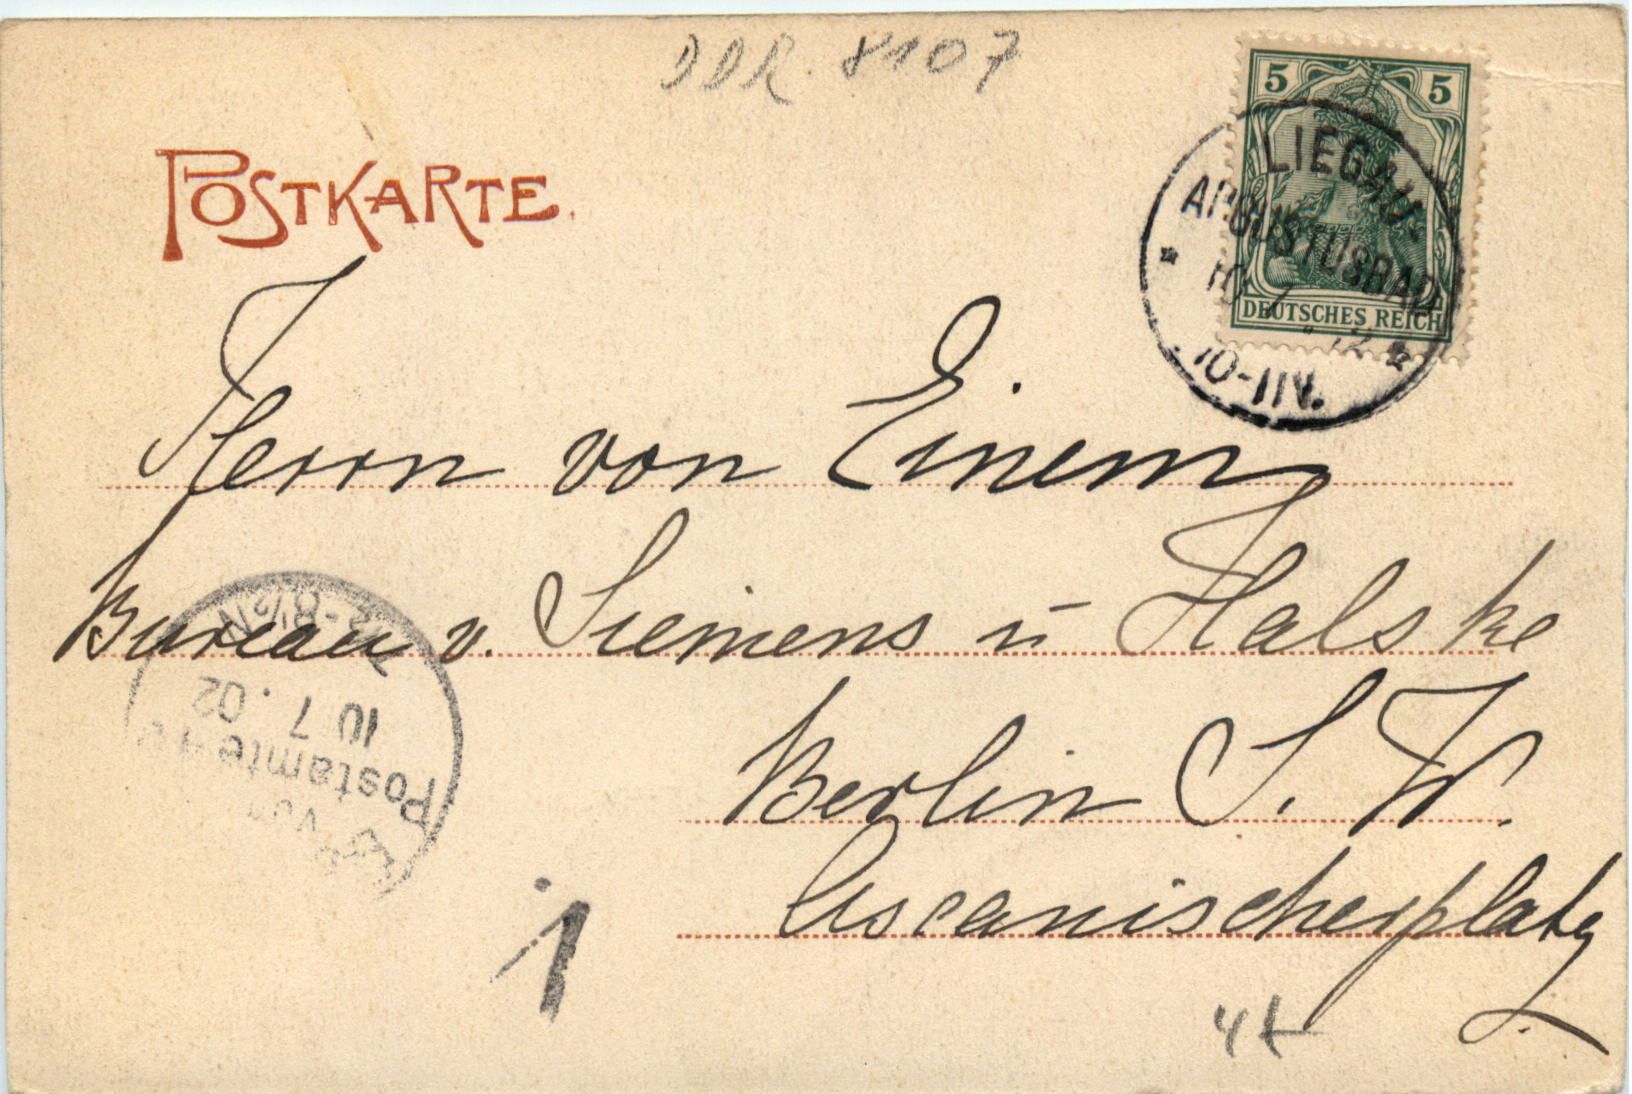 DDR 8107
POSTKARTE.
5 5
DEUTSCHES REICH
LIEGAU-
AUGUSTUSBAD
10 7
10-11N.
Herrn von Einem
Bureau v. Siemens u Halske
Berlin S. W.
Ascanischerplatz
8½N
10 7. 02
Postamte
vom
1
4t